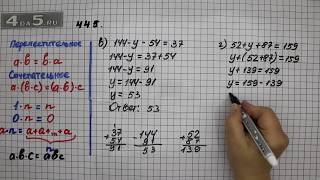 4DA5.RU
445.
Переместительное
a·b=b·a
Сочетательное
a·(b·c)=(a·b)·c
1·n=n
0·n=0
a·n=a+a+...+a
n
a·b·c=abc
в) 144-y-54=37
144-y=37+54
144-y=91
y=144-91
y=53
Ответ: 53
+37
54
91
-144
91
53
г) 52+y+87=159
y+(52+87)=159
y+139=159
y=159-139
+52
87
139